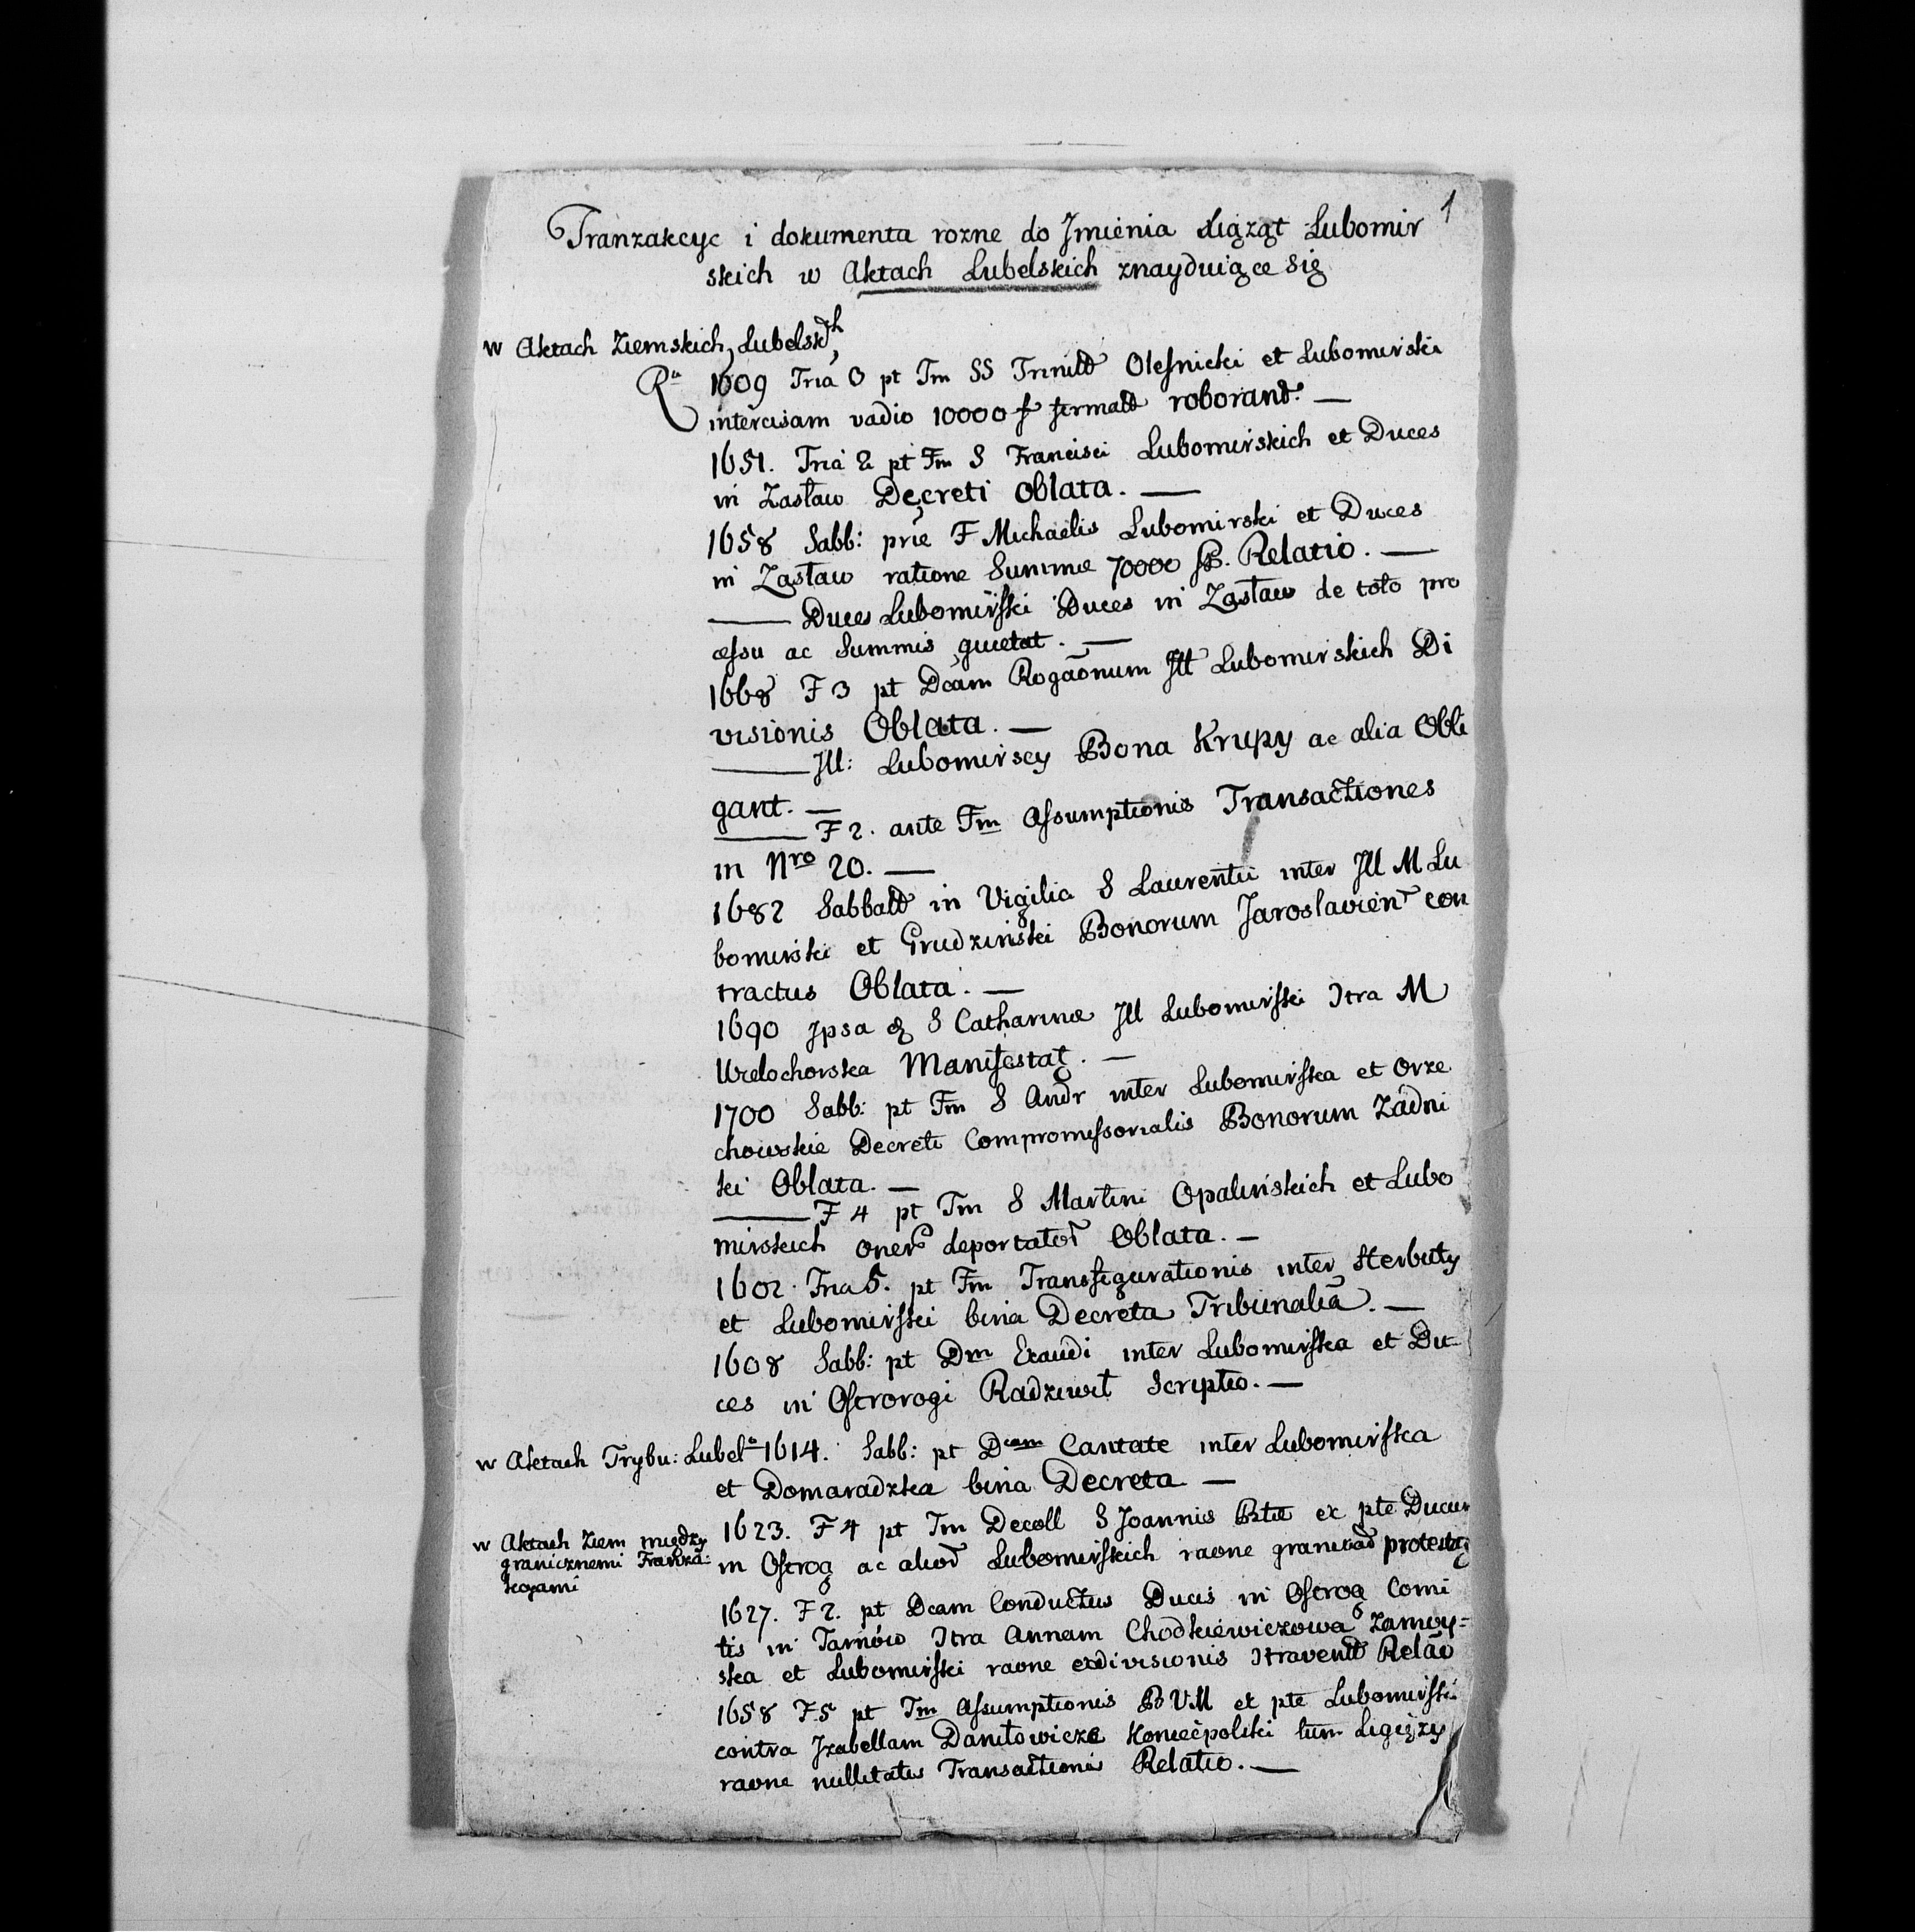 1
Tranzakcye i dokumenta rozne do Jmienia Xiążąt Lubomir
skich w Aktach Lubelskich znayduiące się
w Aktach Ziemskich Lubelskch
Ru 1609 Fria 3 pt Fm SS Trinitt Olesnicki et Lubomirski
intercisam vadio 10000 f firmatt roborant. —
1651. Fria 2 pt Fm S Francisci Lubomirskich et Duces
in Zasław Decreti Oblata. —
1658 Sabb: prie F Michaelis Lubomirski et Duces
in Zasław ratione Summæ 70000 fp. Relatio. —
— Duces Lubomirski Duces in Zasław de toto pro
cessu ac Summis quietat. —
1668 F 3 pt Dcam Rogaonum Jll Lubomirskich Di
visionis Oblata. —
— Jll: Lubomirscy Bona Krupy ac alia Obli
gant. —
— F 2. ante Fm Assumptionis Transactiones
in Nro 20. —
1682 Sabbatt in Vigilia S Laurentii inter Jll M Lu
bomirski et Grudzinski Bonorum Jaroslavien con
tractus Oblata. —
1690 Jpsa S Catharinæ Jll Lubomirski Itra M
Wielochorska Manifestat. —
1700 Sabb: pt Fm S Andr inter Lubomirska et Orze
chowskie Decreti Compromissorialis Bonorum Zadni
ki Oblata. —
— F 4 pt Fm S Martini Opalinskich et Lubo
mirskich oner deportator Oblata. —
1602. Fria 5. pt Fm Transfigurationis inter Herbuty
et Lubomirski bina Decreta Tribunalia. —
1608 Sabb: pt Dm Exaudi inter Lubomirska et Du-
ces in Ostrorogi Radziwił Scriptio. —
w Aktach Trybu: Lubel 1614. Sabb: pt Dcam Cantate inter Lubomirska
et Domaradzka bina Decreta —
w Aktach Ziem między
granicznemi Tranza:
kcyami
1623. F 4 pt Fm Decoll S Joannis Btæ ex pte Ducum
in Ostrog ac alior Lubomirskich raone granitiad protestat
1627. F 2. pt Dcam Conductus Ducis in Ostrog Comi
tis in Tarnów Itra Annam Chodkiewiczowa Zamoy=
ska et Lubomirski raone exdivisionis Itravent Relao
1658 F.5 pt Fm Assumptionis BVM ex pte Lubomirski
contra Jzabellam Daniłowicza Koniecpolski tum Ligęzy
raone nullitatis Transactionis Relatio. —